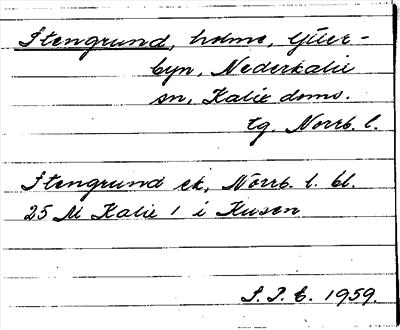 Stengrund, holme, Ytter-
byn, Nederkalix
sn, Kalix doms.
tg. Norrb. l.
Stengrund ek, Norrb. l. bl.
25 M Kalix 1 i Kusen
1959.